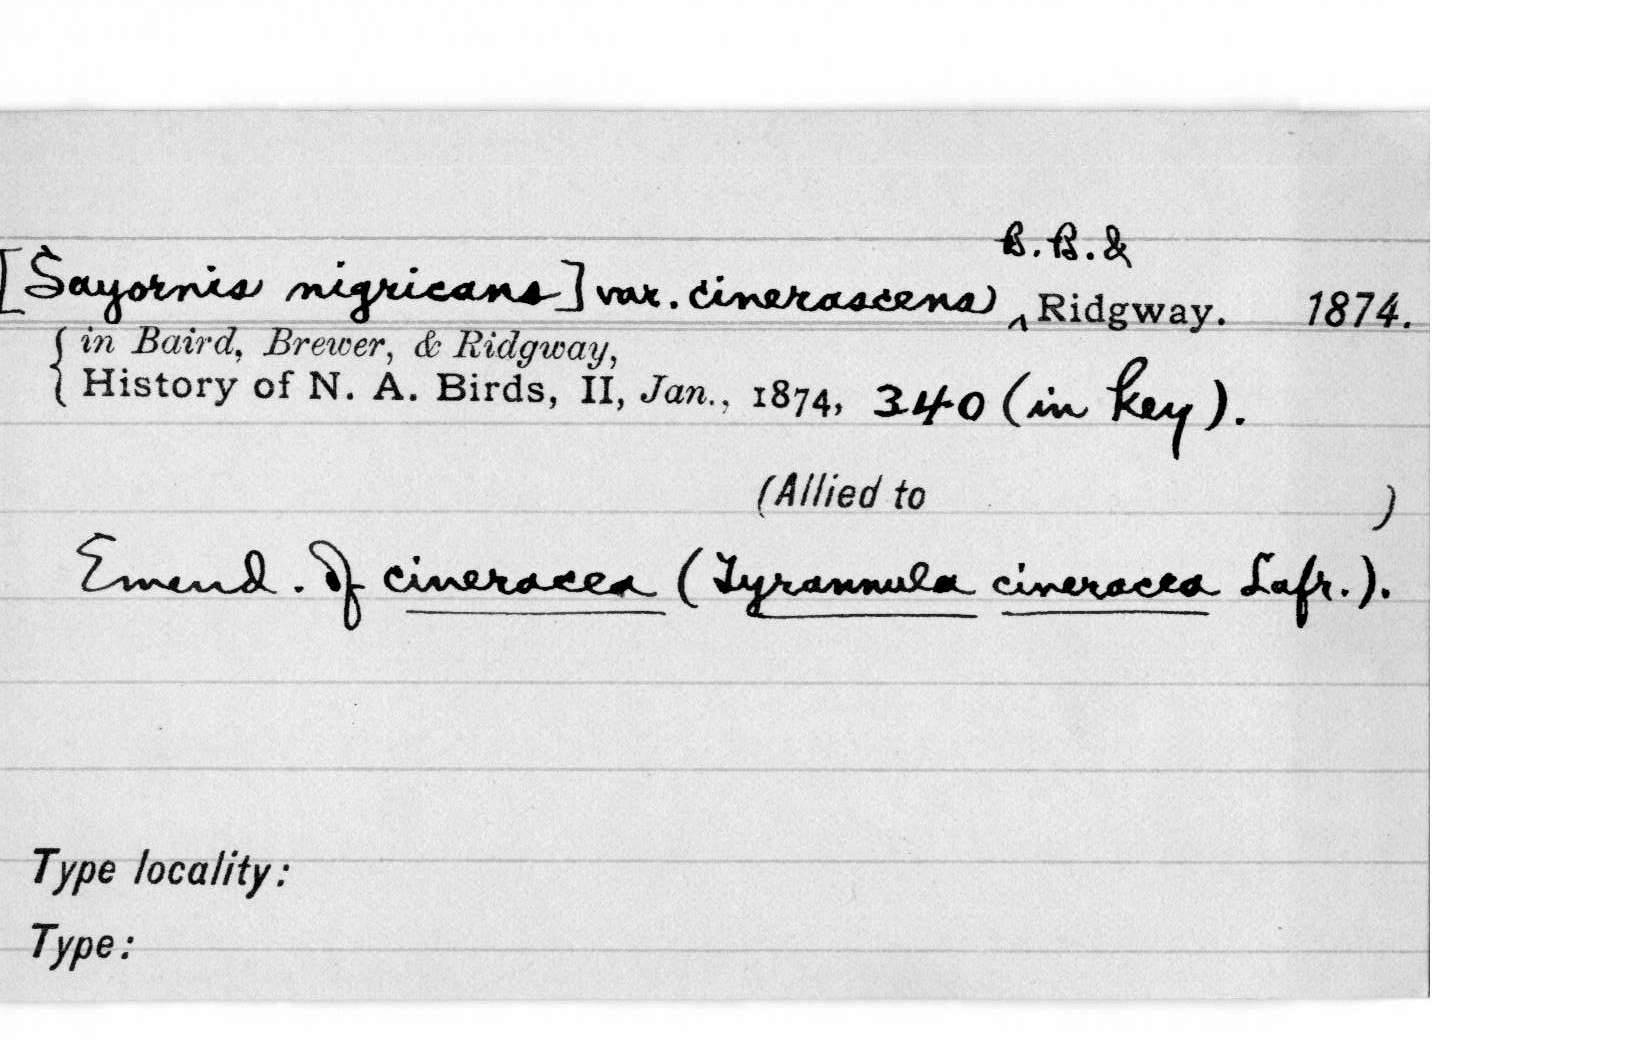 [Sayornis nigricans] var. cinerascens B.B.& ‸ Ridgway. 1874.
in Baird, Brewer, & Ridgway,
History of N. A. Birds, II, Jan., 1874, 340 (in key).
(Allied to )
Emend. of cineracea (Tyrannula cineracea Lafr.).
Type locality:
Type: